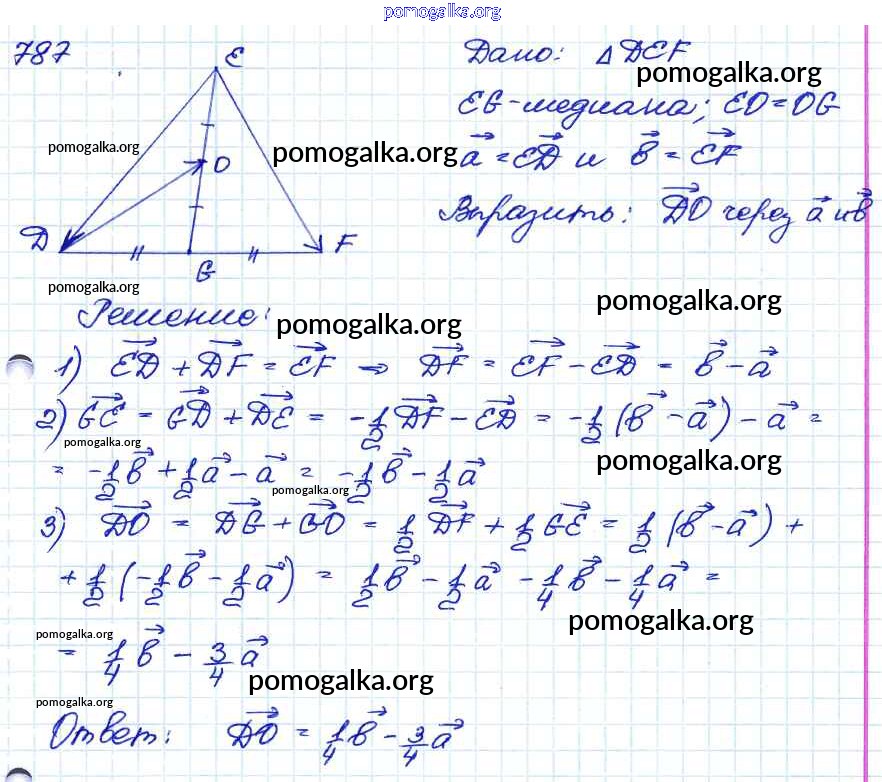 pomogalka.org
787
E
O
D
G
F
Дано: △ DEF
pomogalka.org
EG-медиана; EO=OG
pomogalka.org
pomogalka.org
a⃗ = ED⃗ и b⃗ = EF⃗
Выразить: DO⃗ через a⃗ и b⃗
pomogalka.org
pomogalka.org
Решение:
pomogalka.org
1) ED⃗ + DF⃗ = EF⃗ ⇒ DF⃗ = EF⃗ - ED⃗ = b⃗ - a⃗
2) GE⃗ = GD⃗ + DE⃗ = -1/2 DF⃗ - ED⃗ = -1/2 (b⃗ - a⃗) - a⃗ =
pomogalka.org
pomogalka.org
= -1/2 b⃗ + 1/2 a⃗ - a⃗ = -1/2 b⃗ - 1/2 a⃗
pomogalka.org
3) DO⃗ = DG⃗ + GO⃗ = 1/2 DF⃗ + 1/2 GE⃗ = 1/2 (b⃗ - a⃗) +
+ 1/2 (-1/2 b⃗ - 1/2 a⃗) = 1/2 b⃗ - 1/2 a⃗ - 1/4 b⃗ - 1/4 a⃗ =
pomogalka.org
pomogalka.org
= 1/4 b⃗ - 3/4 a⃗
pomogalka.org
pomogalka.org
Ответ: DO⃗ = 1/4 b⃗ - 3/4 a⃗